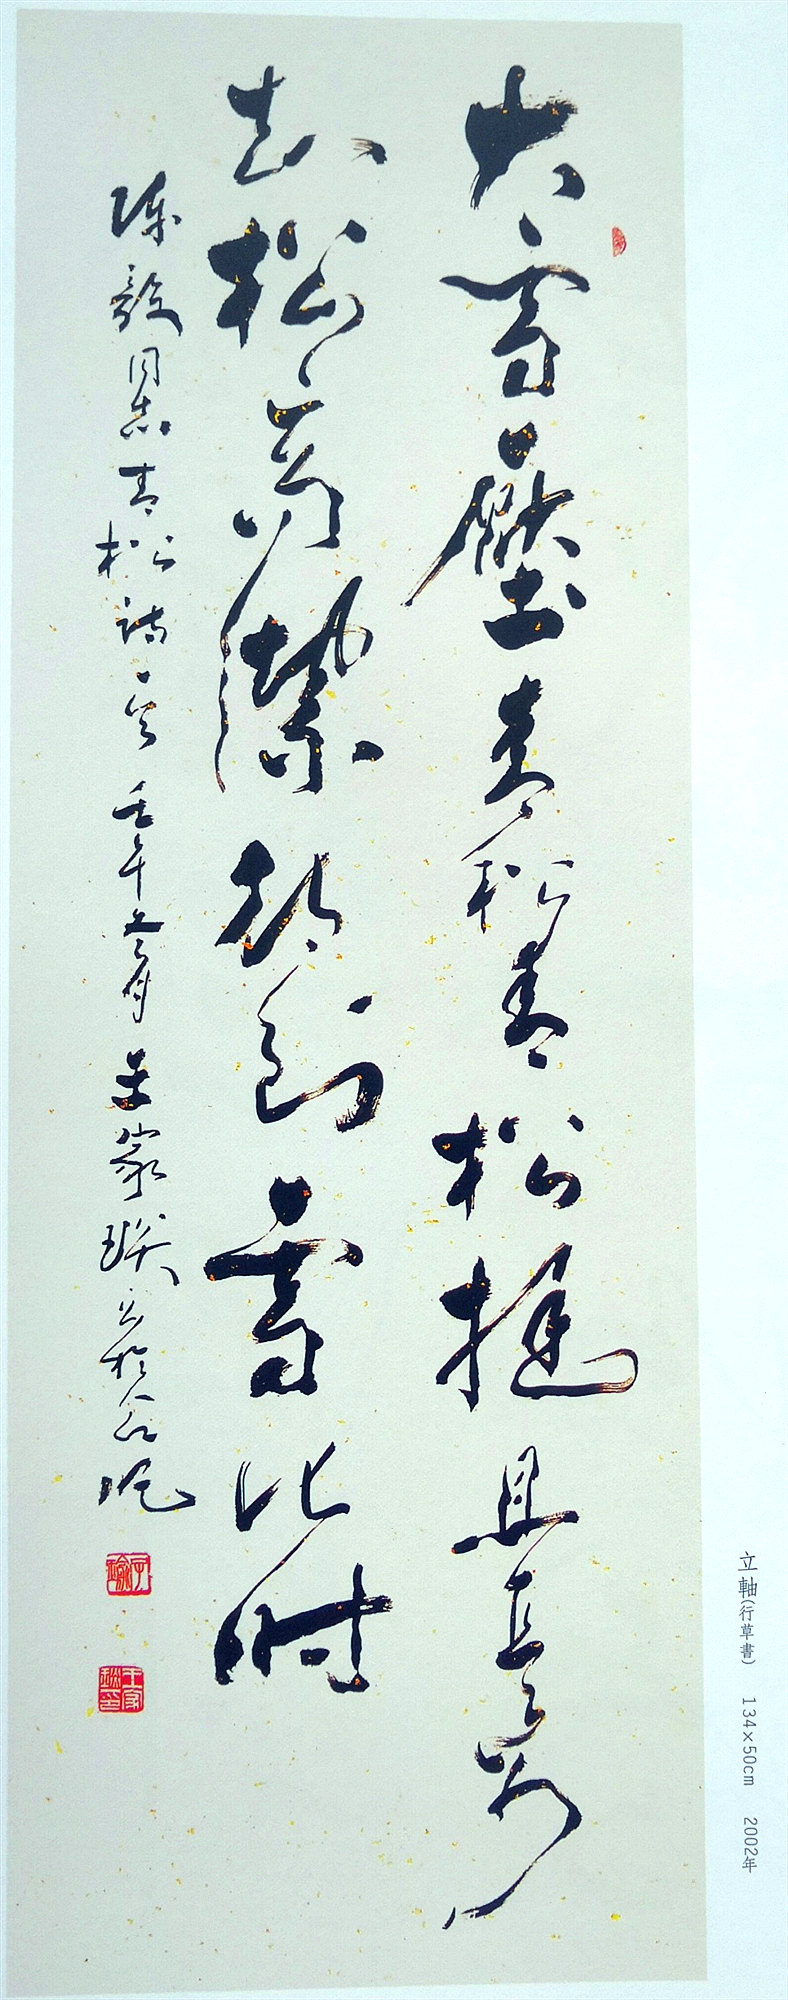 大雪壓青松青松挺且直要
知松高潔待到雪化時
陳毅同志青松詩一首 壬午 月 王家 書於
立軸(行草書) 134×50cm 2002年